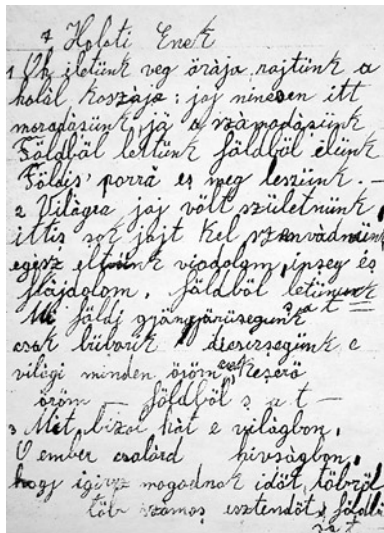 4 Holoti Enek
1 Oh, iletünk veg òràja rajtünk a
holàl koszàja: jaj ninesen itt
moradàsünk jà a szàmodàsünk
Földböl lettünk földböl elünk
Földis, porrà es meg leszünk. —
2 Vilàgra jaj völt születnünk,
ittis sok jajt kel szanvàdnünk
egisz eltünk viodolom, insey és
fàjdolom, földböl letünk
Mi földi gjönjörüsegünk s a t =
csak büborik dicsizsegünk e
vilàgi minden öröm, csak keserö
öröm — földböl s a t —
3 Mit bizol hàt e vilàgbon,
O ember csalàrd hivsàgbon,
hogy igirsz magadnak idöt, töbröl
töb szamos esztendöt, földbö
s a t